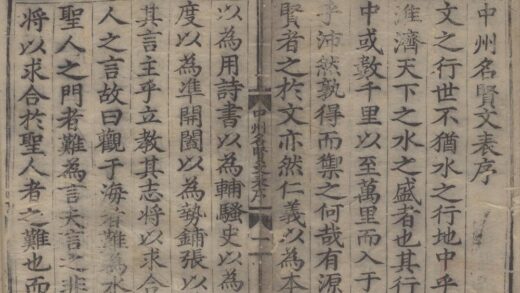 中州名賢文表序
文之行世不猶水之行地中乎
淮濟天下之水之盛者也其行
中或數千里以至萬里而入于
乎沛然孰得而禦之何哉有源
賢者之於文亦然仁義以為本
以為用詩書以為輔騷史以為
度以為準開闔以為勢鋪張以
其言主乎立教其志將以求合
人之言故曰觀于海者難為水
聖人之門者難為言夫言之非
將以求合於聖人者之難也而